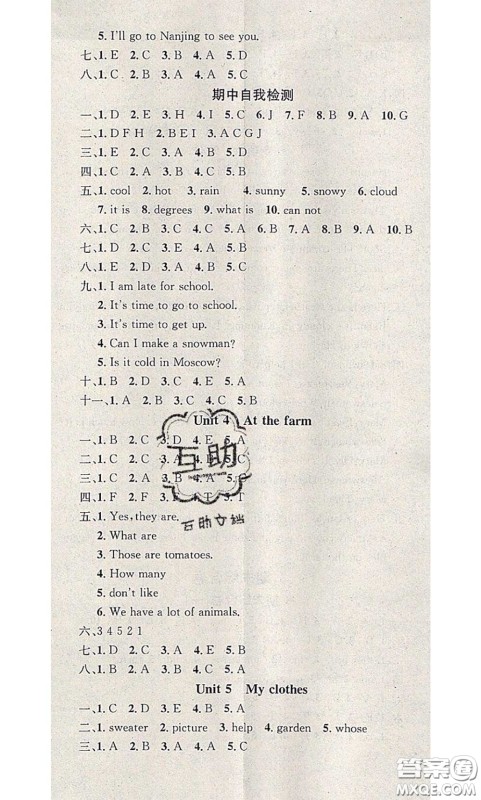 5. I'll go to Nanjing to see you.
七、1. E 2. C 3. B 4. A 5. D
八、1. C 2. B 3. A 4. A 5. C
期中自我检测
一、1. D 2. E 3. H 4. I 5. C 6. J 7. F 8. B 9. A 10. G
二、1. D F H 2. B E I 3. A C G J
三、1. E 2. C 3. A 4. B 5. D
四、1. C 2. A 3. C 4. B 5. A
五、1. cool 2. hot 3. rain 4. sunny 5. snowy 6. cloud
7. it is 8. degrees 9. what is 10. can not
六、1. C 2. B 3. C 4. C 5. A 6. B 7. A 8. B 9. A 10. B
七、1. D 2. C 3. A 4. E 5. B
八、1. E 2. D 3. B 4. C 5. A
九、1. I am late for school.
2. It's time to go to school.
3. It's time to get up.
4. Can I make a snowman?
5. Is it cold in Moscow?
十、1. B 2. D 3. C 4. E 5. A
十一、1. A 2. B 3. A 4. C 5. B
Unit 4 At the farm
一、1. B 2. C 3. D 4. E 5. A
二、1. C 2. B 3. A 4. B 5.
三、1. B 2. C 3. A 4. 5.
四、1. F 2. F 3. 4. T 5. T
五、1. Yes, they are.
2. What are
3. Those are tomatoes.
4. How many
5. don't like
6. We have a lot of animals.
六、3 4 5 2 1
七、1. D 2. C 3. A 4. E 5. B
八、1. B 2. A 3. B 4. C 5. A
互助
互助文档
Unit 5 My clothes
一、1. C 2. D 3. A 4. B 5. E
二、1. sweater 2. picture 3. help 4. garden 5. whose
三、1. A 2. B 3. A 4. A 5. C
答案圈
MXQE.COM